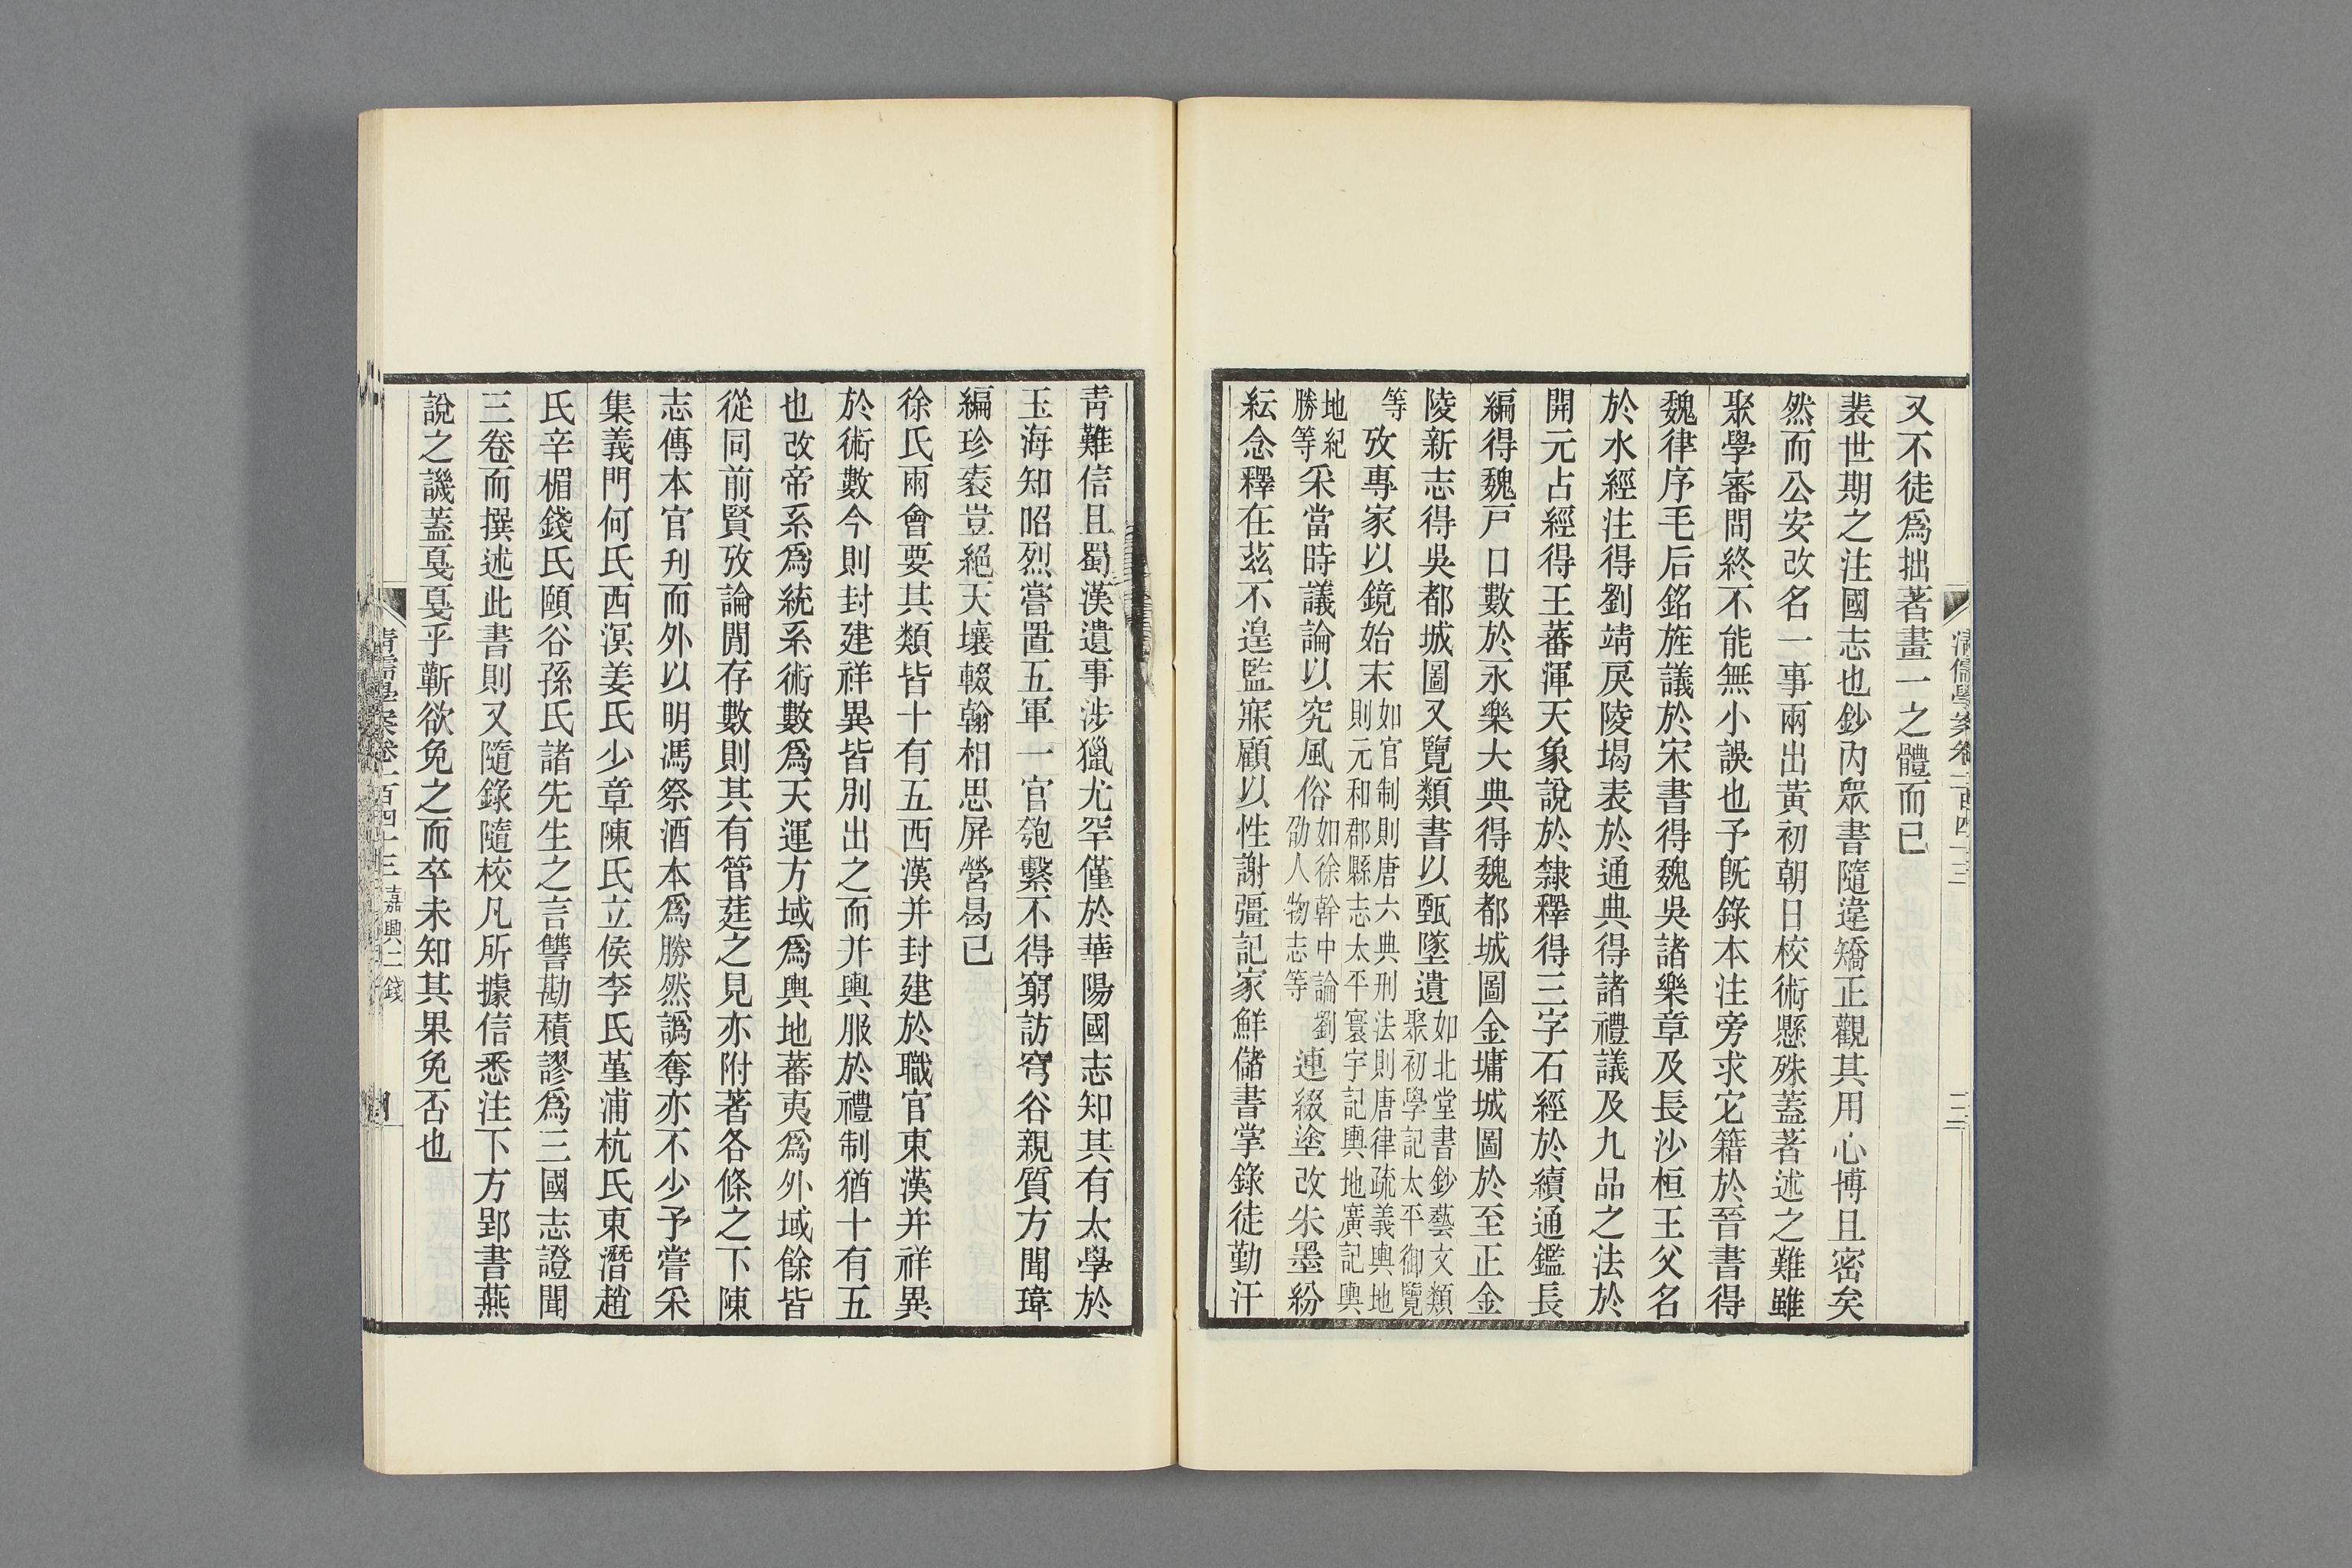 清儒學案卷二百四十三
三
又不徒爲拙著畫一之體而已
裴世期之注國志也鈔內眾書隨違矯正觀其用心博且密矣
然而公安改名一事兩出黃初朝日校術懸殊蓋著述之難雖
聚學審問終不能無小誤也予旣錄本注旁求它籍於晉書得
魏律序毛后銘旌議於宋書得魏吳諸樂章及長沙桓王父名
於水經注得劉靖戾陵堨表於通典得諸禮議及九品之法於
開元占經得王蕃渾天象說於隸釋得三字石經於續通鑑長
編得魏戸口數於永樂大典得魏都城圖金墉城圖於至正金
陵新志得吳都城圖又覽類書以甄墜遺如北堂書鈔藝文類聚初學記太平御覽
等攷專家以鏡始末如官制則唐六典刑法則唐律疏義輿地則元和郡縣志太平寰宇記輿地廣記輿
地紀勝等采當時議論以究風俗如徐幹中論劉劭人物志等連綴塗改朱墨紛
紜念釋在茲不遑監寐顧以性謝彊記家鮮儲書掌錄徒勤汗
靑難信且蜀漢遺事涉獵尤罕僅於華陽國志知其有太學於
玉海知昭烈嘗置五軍一官匏繫不得窮訪穹谷親質方聞瑋
編珍袠豈絕天壤輟翰相思屏營曷已
徐氏兩會要其類皆十有五西漢并封建於職官東漢并祥異
於術數今則封建祥異皆別出之而并輿服於禮制猶十有五
也改帝系爲統系術數爲天運方域爲輿地蕃夷爲外域餘皆
從同前賢攷論閒存數則其有管莛之見亦附著各條之下陳
志傳本官刋而外以明馮祭酒本爲勝然譌奪亦不少予嘗采
集義門何氏西溟姜氏少章陳氏立侯李氏堇浦杭氏東潛趙
氏辛楣錢氏頤谷孫氏諸先生之言讐勘積謬爲三國志證聞
三卷而撰述此書則又隨錄隨校凡所據信悉注下方郢書燕
說之譏蓋戛戛乎蘄欲免之而卒未知其果免否也
清儒學案卷二百四十三 嘉興二錢